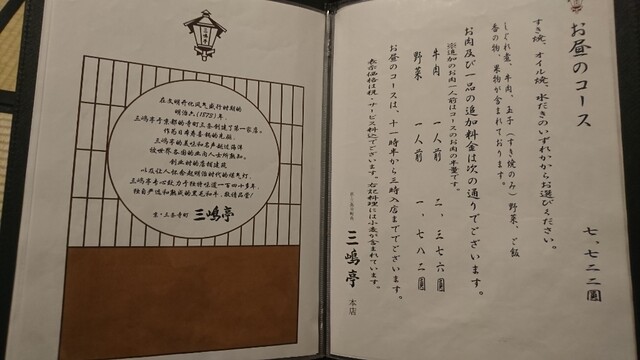 三嶋亭
在文明开化风气盛行时期的
明治六(1873)年,
三嶋亭于京都的寺町三条创建了第一家店。
作为日本寿喜锅的先驱,
三嶋亭的美味和名声越过海洋
被世界各国的业内人士所熟知。
创业时的店铺建筑
以及让人怀念起明治时代的煤气灯,
三嶋亭专心致力于独特味道一百四十多年,
独自严选和熟成的黑毛和牛、敬请品尝!
京・三条寺町 三嶋亭
お昼のコース 七、七二二圓
すき焼、オイル焼、水だきのいずれかからお選びください。
しぐれ煮、牛肉、玉子(すき焼のみ)野菜、ご飯
香の物、果物が含まれております。
お肉及び一品の追加料金は次の通りでございます。
※追加のお肉一人前はコースのお肉の半量です。
牛肉 一人前 二、三七六圓
野菜 一人前 一、七八二圓
お昼のコースは、十一時半から三時入店まででございます。
表示価格は税・サービス料込でございます。右記料理には小麦が含まれています。
三嶋亭 本店